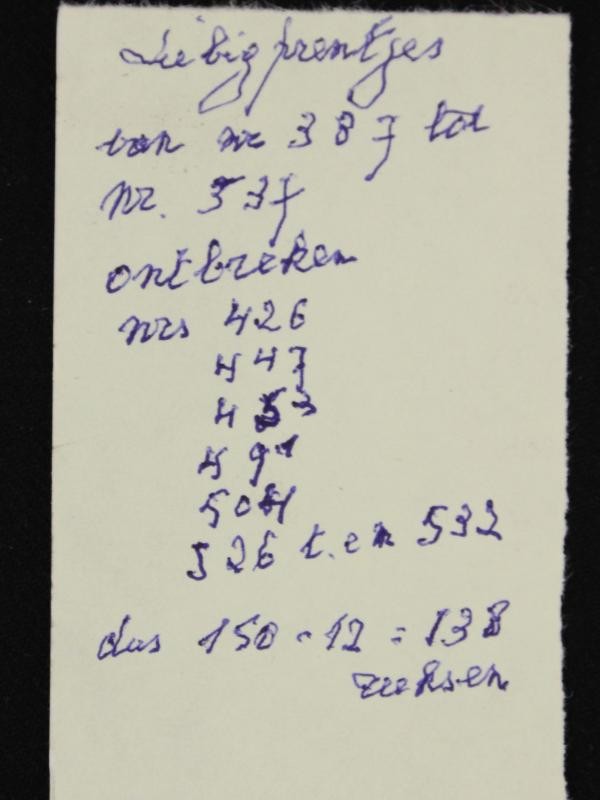 Liebigprentjes
van nr 387 tot
nr. 537
ontbreken
nrs 426
447
453
491
504
526 t. en 532
dus 150 - 12 = 138
reeksen